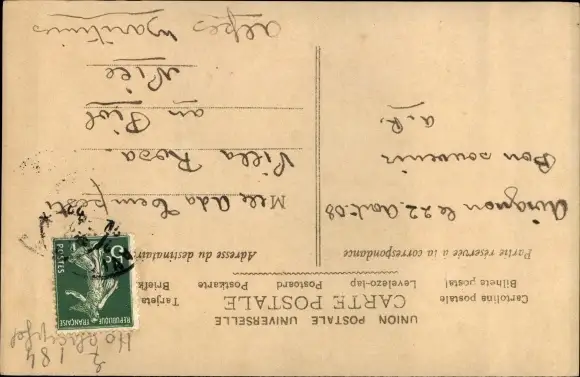 UNION POSTALE UNIVERSELLE
CARTE POSTALE
Cartolina postale Levelezo-lap Postcard Postkarte Tarjeta
Bilhete postal Briefk
Partie réservée à la correspondance
Adresse du destinataire
Avignon le 22. Août 08
Bon souvenir
a. R.
Mlle Ada
Villa Rosa
au Piol
Nice
Alpes
Maritimes
REPUBLIQUE FRANÇAISE
5c
POSTES
2184